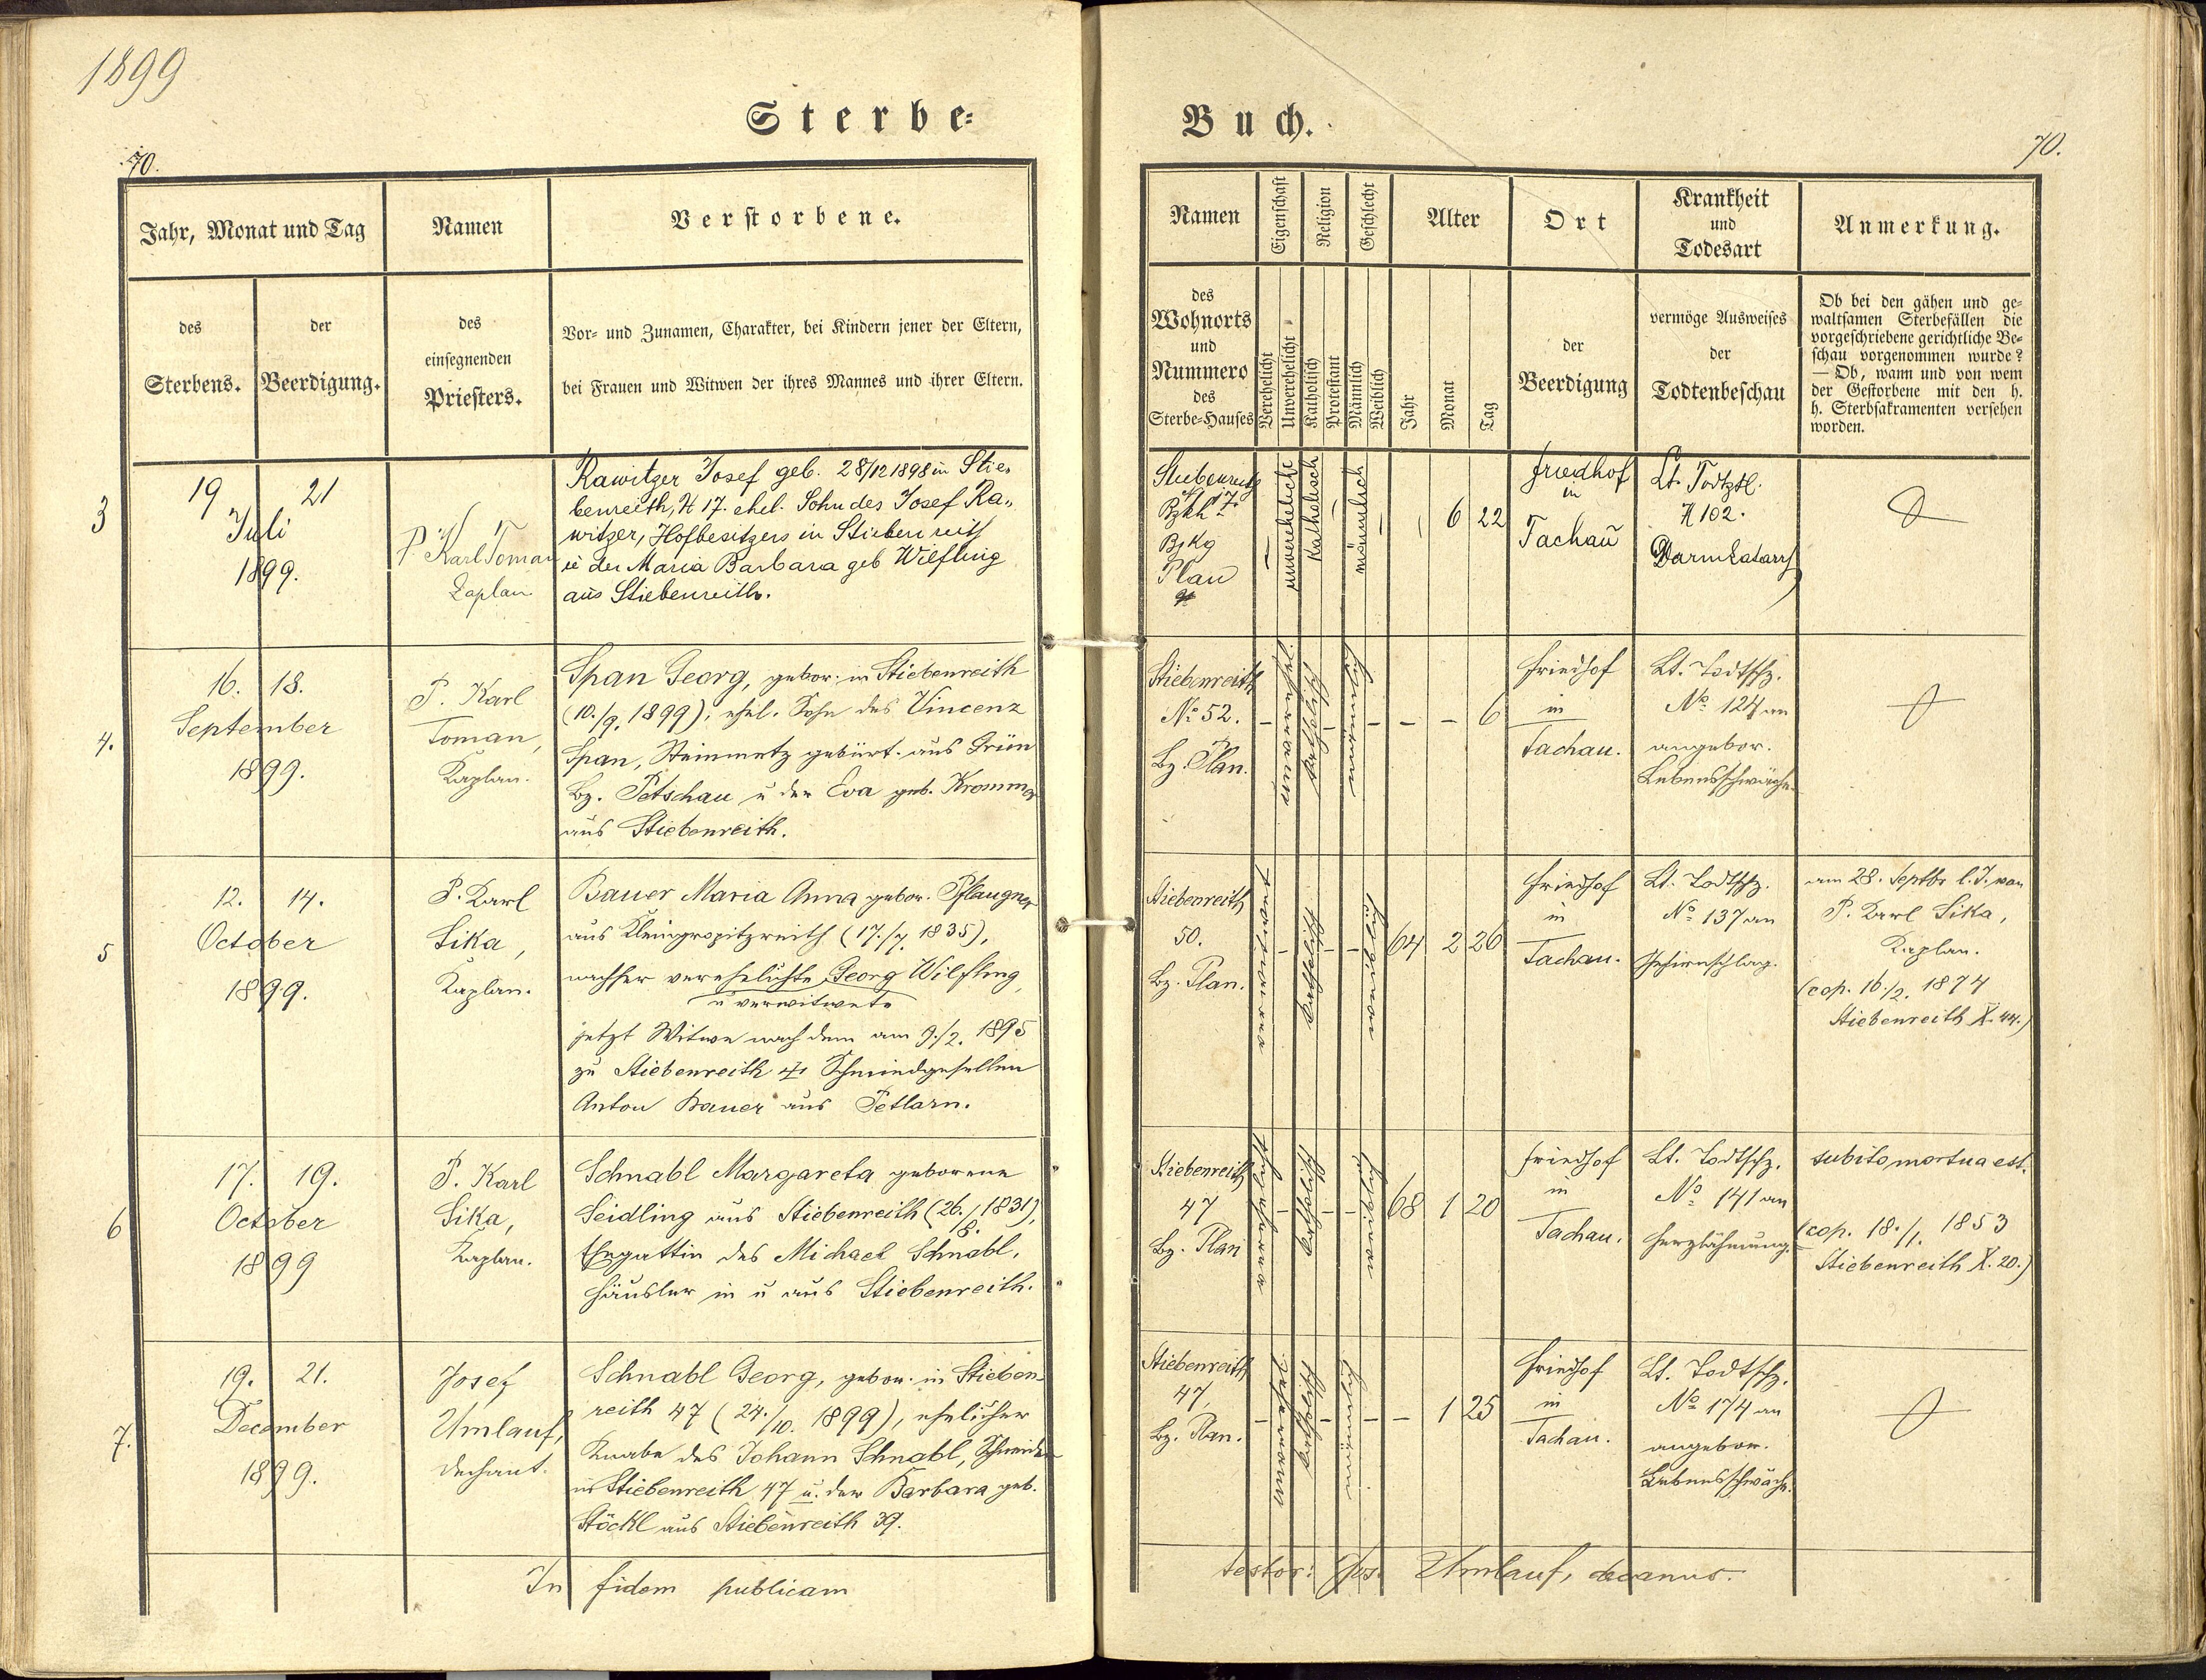 1899
Sterbe-
70.
Jahr, Monat und Tag
Namen
Verstorbene.
des
Sterbens.
der
Beerdigung.
des
einsegnenden
Priesters.
Vor- und Zunamen, Charakter, bei Kindern jener der Eltern,
bei Frauen und Witwen der ihres Mannes und ihrer Eltern.
3
19 21
Juli
1899.
P Karl Toman
Kaplan
Rawitzer Josef geb. 28/12 1898 in Stie-
benreith, N 17. ehel. Sohn des Josef Ra-
witzer, Hofbesitzers in Stiebenreith
u der Maria Barbara geb Wilfling
aus Stiebenreith.
4.
16. 18.
September
1899.
P. Karl
Toman,
Kaplan.
Span Georg, gebor. in Stiebenreith
(10./9. 1899), ehel. Sohn des Vincenz
Span, Steinmetz gebürt. aus Grün
Bz. Petschau u der Eva geb. Krommer
aus Stiebenreith.
5
12. 14.
October
1899.
P. Karl
Sika,
Kaplan.
Bauer Maria Anna gebor. Pflaugner
aus Kleingropitzreith (17./7. 1835),
nachher verehelichte Georg Wilfling,
u verwitwete
jetzt Witwe nach dem am 9./2. 1895
zu Stiebenreith † Schmiedgesellen
Anton Bauer aus Petlarn.
6
17. 19.
October
1899
P. Karl
Sika,
Kaplan.
Schnabl Margareta geborene
Seidling aus Stiebenreith (26./8. 1831),
Ehegattin des Michael Schnabl,
Häusler in u aus Stiebenreith.
7.
19. 21.
December
1899.
Josef
Umlauf,
Dechant.
Schnabl Georg, gebor. in Stieben-
reith 47 (24./10. 1899), ehelicher
Knabe des Johann Schnabl, Schneider
in Stiebenreith 47 u. der Barbara geb.
Stöckl aus Stiebenreith 39.
In fidem publicam
Buch.
70.
Namen
Eigenschaft
Religion
Geschlecht
Alter
Ort
Krankheit
und
Todesart
Anmerkung.
des
Wohnorts
und
Nummero
des
Sterbe-Hauses
Verehelicht
Unverehelicht
Katholisch
Protestant
Männlich
Weiblich
Jahr
Monat
Tag
der
Beerdigung
vermöge Ausweises
der
Todtenbeschau
Ob bei den gähen und ge-
waltsamen Sterbefällen die
vorgeschriebene gerichtliche Be-
schau vorgenommen wurde?
— Ob, wann und von wem
der Gestorbene mit den h.
h. Sterbsakramenten versehen
worden.
Stiebenreith
Bzkh 17.
Bzkg
Plan
unverehelicht
katholisch
männlich
6 22
Friedhof
in
Tachau
Lt. Todtzl.
N 102.
Darmkatarrh
Stiebenreith
No 52.
Bz. Plan.
unverehel.
katholisch
männlich
6
Friedhof
in
Tachau.
Lt. Todtschz.
No 124 an
angebor.
Lebensschwäche.
Stiebenreith
50.
Bz. Plan.
verwitwet
katholisch
weiblich
64 2 26
Friedhof
in
Tachau.
Lt. Todtschz.
No 137 an
Gehirnschlag.
am 28. Septbr l. J. von
P. Karl Sika,
Kaplan.
(cop. 16./2. 1874
Stiebenreith X. 44.)
Stiebenreith
47
Bz. Plan
verehelicht
katholisch
weiblich
68 1 20
Friedhof
in
Tachau.
Lt. Todtschz.
No 141 an
Herzlähmung.
subito mortua est.
(cop. 18./1. 1853
Stiebenreith X. 20.)
Stiebenreith
47,
Bz. Plan.
unverehel.
katholisch
männlich
1 25
Friedhof
in
Tachau.
Lt. Todtschz.
No 174 an
angebor.
Lebensschwäche.
testor: Jos. Umlauf, decanus.